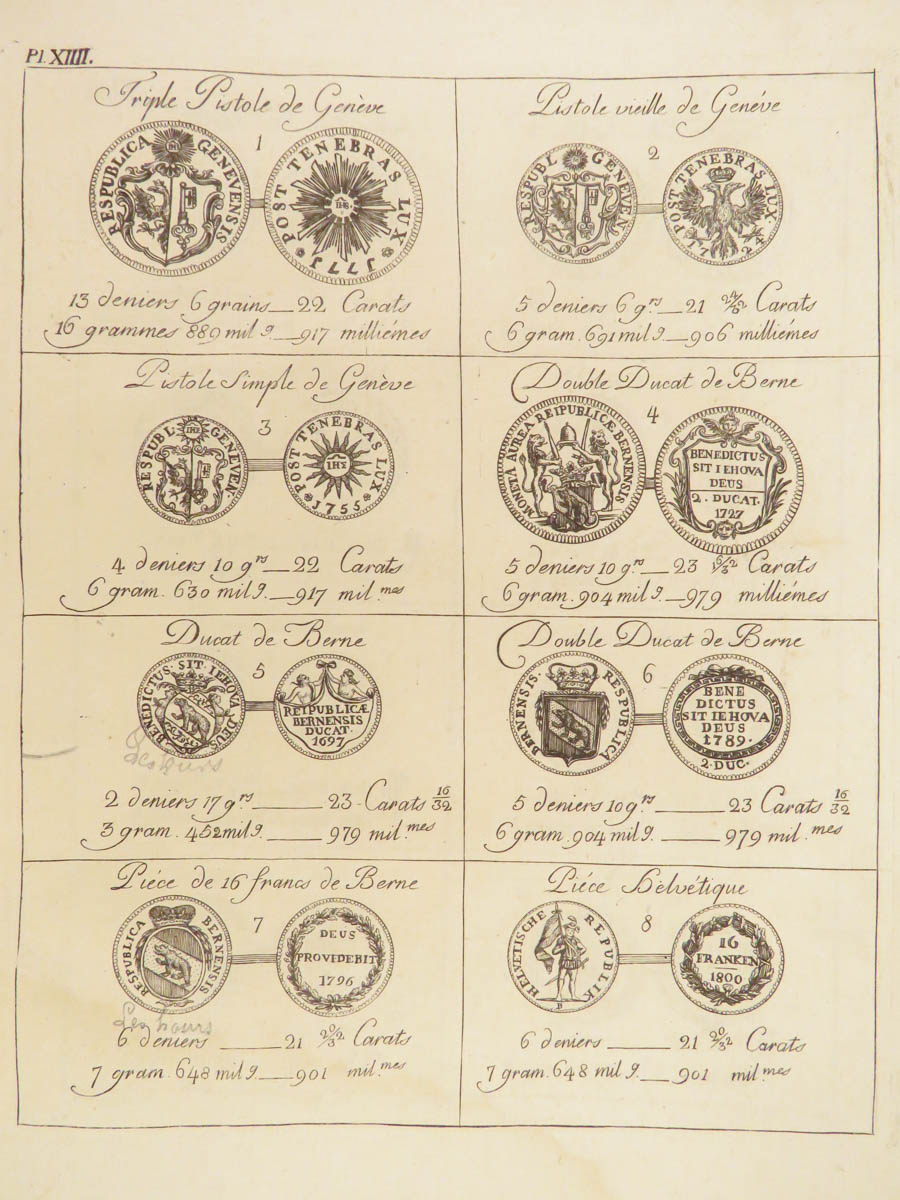 Pl. XIIII.
Triple Pistole de Genève
1
RESPUBLICA GENEVENSIS
POST TENEBRAS LUX
1771
13 deniers 6 grains 22 Carats
16 grammes 889 mil g. 917 milliémes
Pistole vieille de Genéve
2
RESPUBL GENEVEN
POST TENEBRAS LUX
1724
5 deniers 6 grs 21 Carats
6 gram. 691 mil g. 906 milliémes
Pistole Simple de Genève
3
RESPUBL GENEVEN.
POST TENEBRAS LUX
1755
4 deniers 10 grs 22 Carats
6 gram. 630 mil g. 917 mil.mes
Double Ducat de Berne
4
MONETA AUREA REIPUBLICÆ BERNENSIS
BENEDICTUS
SIT IEHOVA
DEUS
2. DUCAT.
1727
5 deniers 10 grs 23 Carats
6 gram. 904 mil g. 979 milliémes
Ducat de Berne
5
BENEDICTUS. SIT. IEHOVA DEUS
REIPUBLICÆ
BERNENSIS
DUCAT.
1697
2 deniers 17 grs 23 Carats 16/32
3 gram. 452 mil g. 979 mil.mes
Double Ducat de Berne
6
BERNENSIS. RESPUBLICA
BENE
DICTUS
SIT IEHOVA
DEUS
1789.
2. DUC.
5 deniers 10 grs 23 Carats 16/32
6 gram. 904 mil g. 979 mil.mes
Piéce de 16 francs de Berne
7
RESPUBLICA BERNENSIS
DEUS
PROVIDEBIT
1796
6 deniers 21 20/32 Carats
7 gram. 648 mil g. 901 mil.mes
Piéce Helvétique
8
HELVETISCHE REPUBLIK
B
16
FRANKEN
1800
6 deniers 21 20/32 Carats
7 gram. 648 mil g. 901 mil.mes